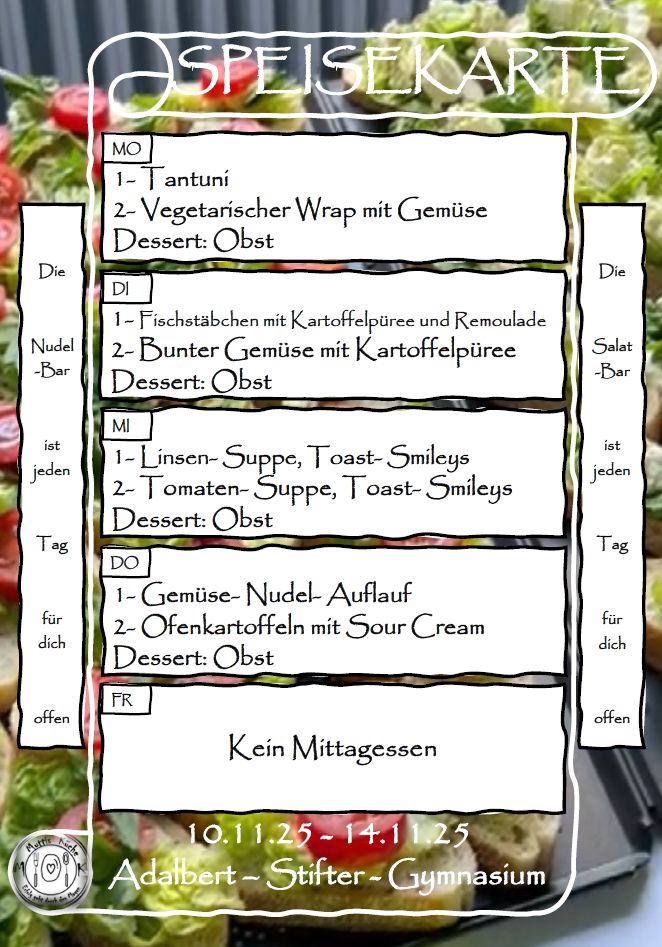 SPEISEKARTE
MO
1- Tantuni
2- Vegetarischer Wrap mit Gemüse
Dessert: Obst
DI
1- Fischstäbchen mit Kartoffelpüree und Remoulade
2- Bunter Gemüse mit Kartoffelpüree
Dessert: Obst
MI
1- Linsen- Suppe, Toast- Smileys
2- Tomaten- Suppe, Toast- Smileys
Dessert: Obst
DO
1- Gemüse- Nudel- Auflauf
2- Ofenkartoffeln mit Sour Cream
Dessert: Obst
FR
Kein Mittagessen
Die
Nudel
-Bar
ist
jeden
Tag
für
dich
offen
Die
Salat
-Bar
ist
jeden
Tag
für
dich
offen
10.11.25 - 14.11.25
Adalbert – Stifter - Gymnasium
Muttis Küche
M K